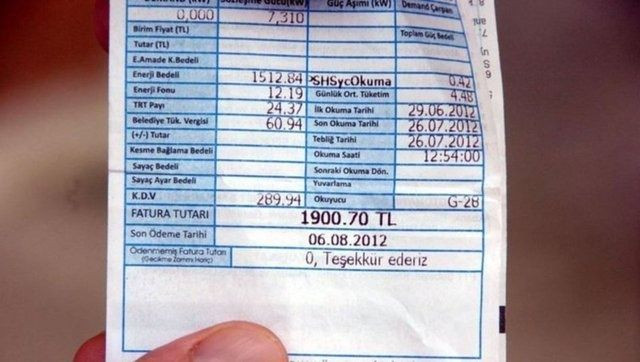 DEMAND (kW) Sözleşme Gücü(kW) Güç Aşımı (kW) Demand Çarpanı
0,000 7,310
Birim Fiyat (TL) Toplam Güç Bedeli
Tutar (TL)
E.Amade K.Bedeli
Enerji Bedeli 1512.84 >SHSycOkuma 0.42
Enerji Fonu 12.19 Günlük Ort. Tüketim 4.48
TRT Payı 24.37 İlk Okuma Tarihi 29.06.2012
Belediye Tük. Vergisi 60.94 Son Okuma Tarihi 26.07.2012
(+/-) Tutar Tebliğ Tarihi 26.07.2012
Kesme Bağlama Bedeli Okuma Saati 12:54:00
Sayaç Bedeli Sonraki Okuma Dön.
Sayaç Ayar Bedeli Yuvarlama
K.D.V 289.94 Okuyucu G-28
FATURA TUTARI 1900.70 TL
Son Ödeme Tarihi 06.08.2012
Ödenmemiş Fatura Tutarı 0, Teşekkür ederiz
(Gecikme Zammı Hariç)